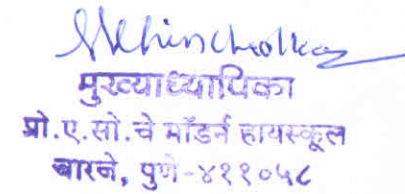 मुख्याध्यापिका
प्रो.ए.सो.चे मॉडर्न हायस्कूल
वारजे, पुणे-४११०५८